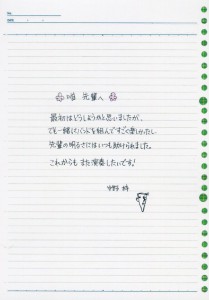 No.
唯 先輩へ
最初はどうしようかと思いましたが、
でも一緒にバンドを組んですごく楽しかったし
先輩の明るさにはいつも助けられました。
これからもまた演奏したいです!
中野 梓